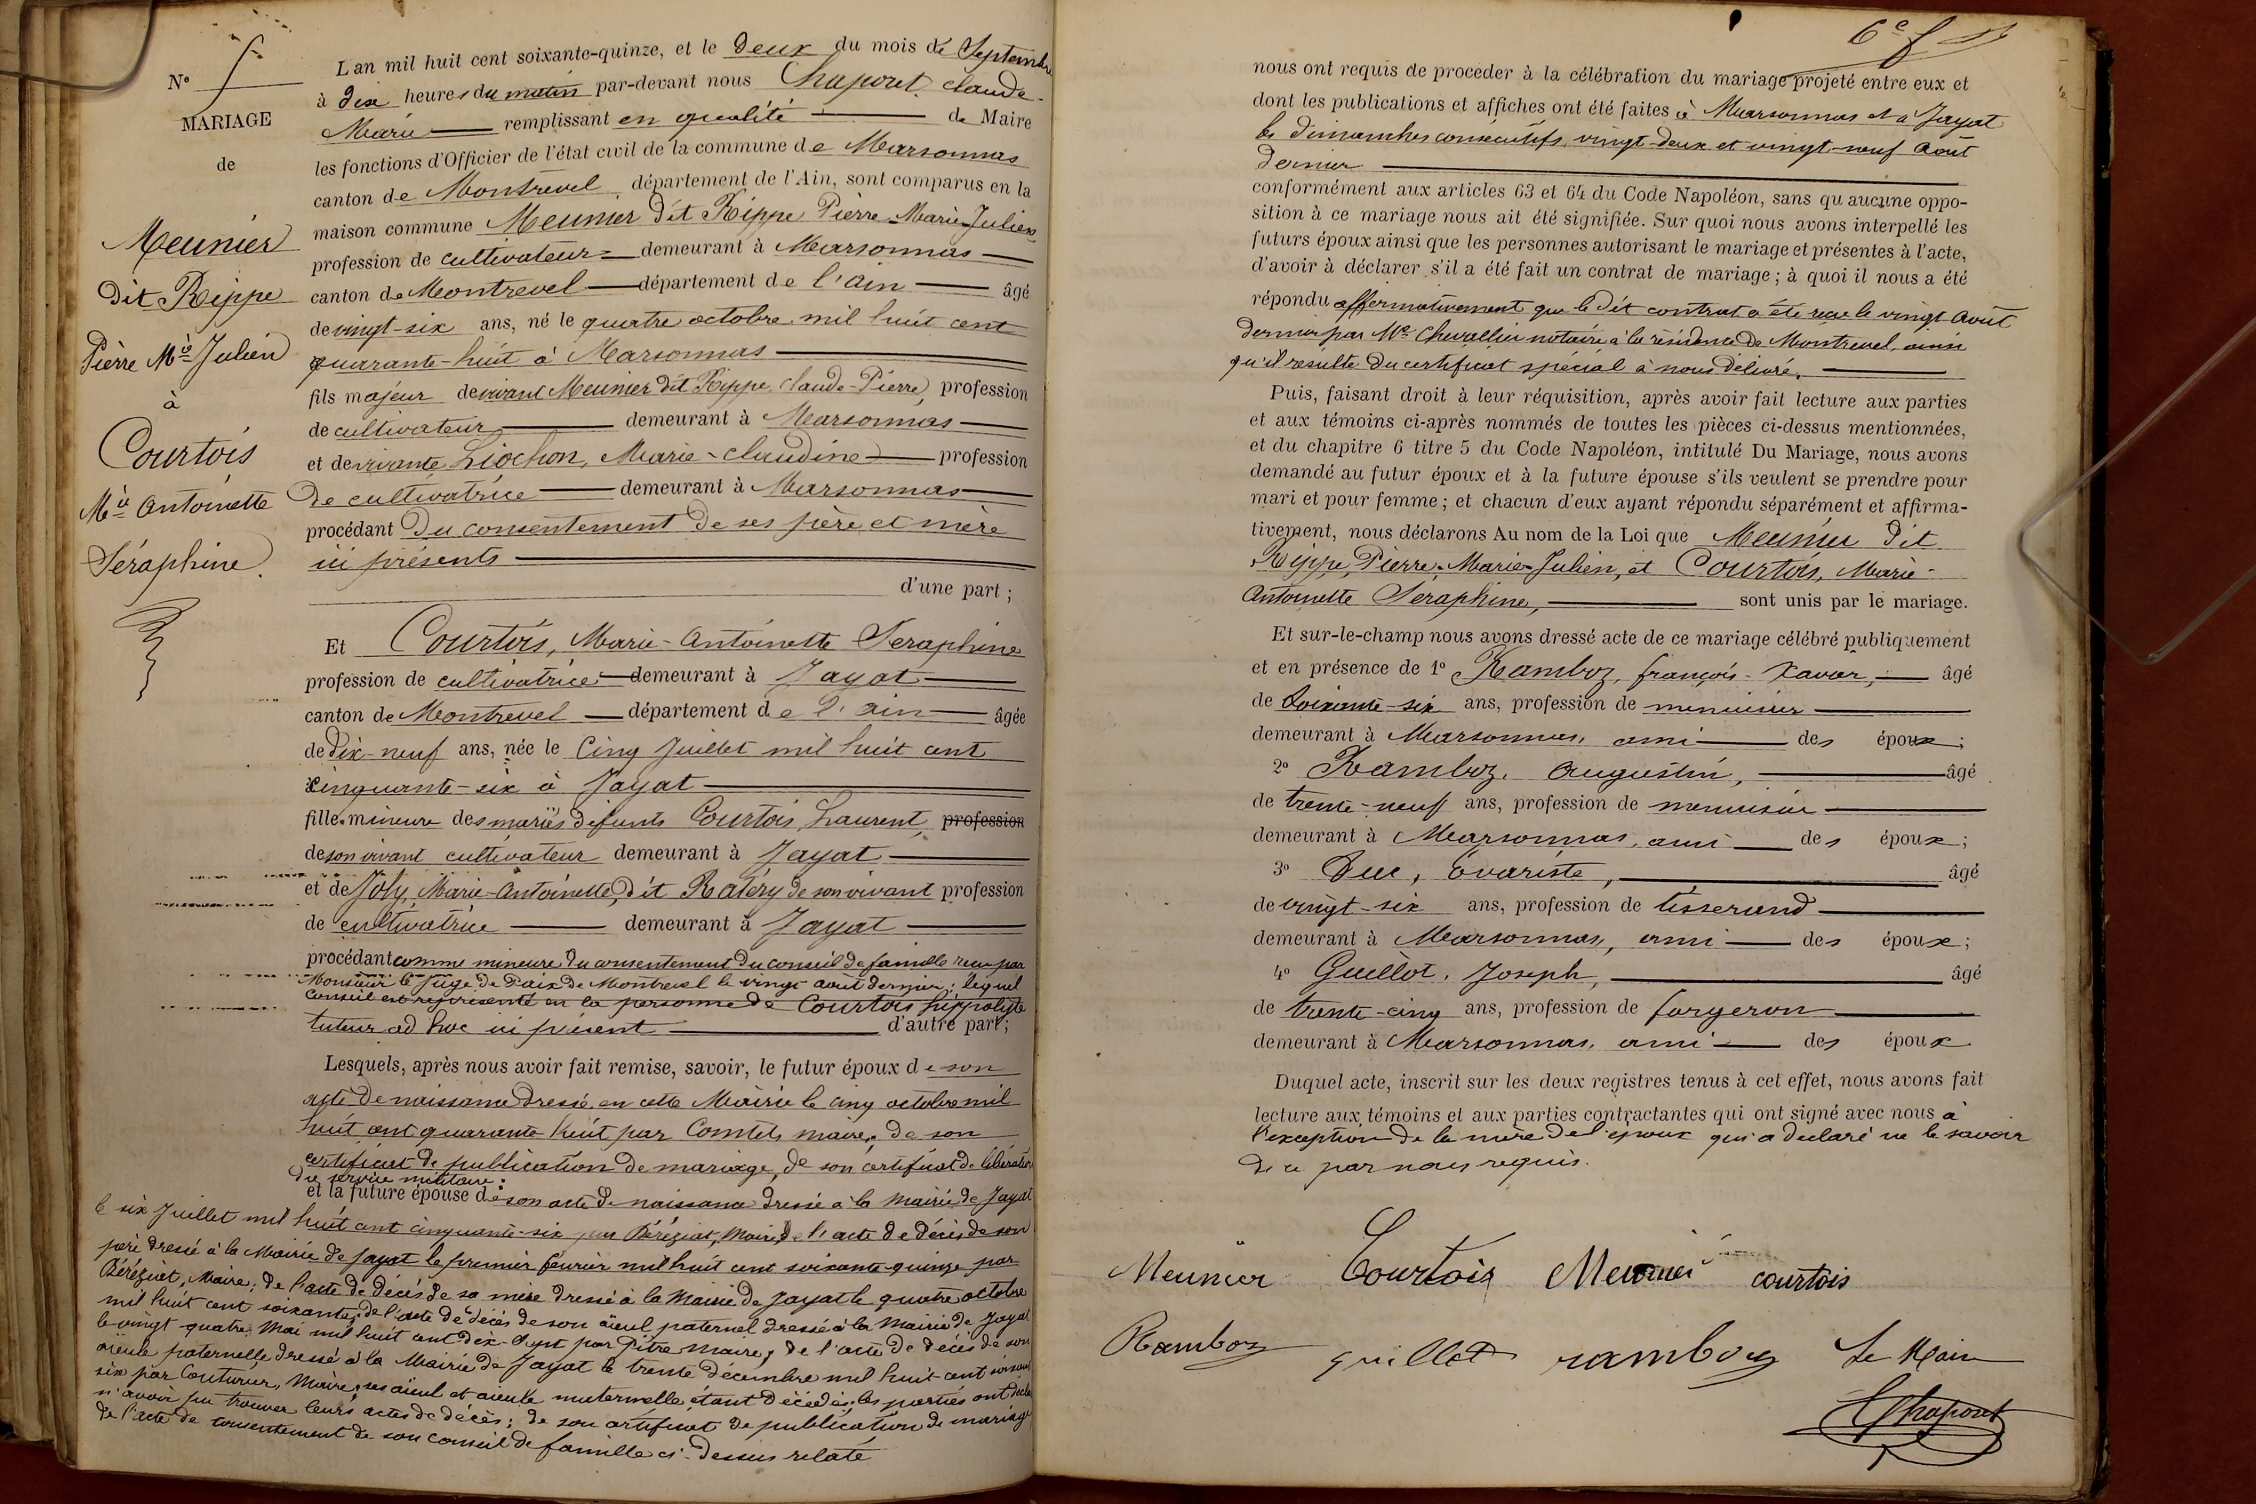 Nº 5
MARIAGE
de
Meunier
dit Rippe
Pierre Mie Julien
à
Courtois
Mie Antoinette
Séraphine.
L'an mil huit cent soixante-quinze, et le deux du mois de Septembre
à dix heures du matin par-devant nous Chaponet Claude-
Marie remplissant en qualité de Maire
les fonctions d'Officier de l'état civil de la commune de Marsonnas
canton de Montrevel département de l'Ain, sont comparus en la
maison commune Meunier dit Rippe Pierre-Marie-Julien
profession de cultivateur demeurant à Marsonnas
canton de Montrevel département de l'ain âgé
de vingt-six ans, né le quatre octobre mil huit cent
quarante-huit à Marsonnas
fils majeur de vivant Meunier dit Rippe, Claude-Pierre, profession
de cultivateur demeurant à Marsonnas
et de vivante Liochon, Marie-Claudine profession
de cultivatrice demeurant à Marsonnas
procédant du consentement de ses père et mère
ici présents
d'une part ;
Et Courtois, Marie-Antoinette Seraphine
profession de cultivatrice demeurant à Jayat
canton de Montrevel département de l'ain âgée
de dix-neuf ans, née le cinq Juillet mil huit cent
cinquante-six à Jayat
fille mineure des mariés défunts Courtois, Laurent, profession
de son vivant cultivateur demeurant à Jayat
et de Joly, Marie-Antoinette, dit Ratézy de son vivant profession
de cultivatrice demeurant à Jayat
procédant comme mineure du consentement du conseil de famille reçu par
Monsieur le Juge de Paix de Montrevel le vingt août dernier ; lequel
conseil est représenté en la personne de Courtois hippolyte
tuteur ad hoc ici présent d'autre part ;
Lesquels, après nous avoir fait remise, savoir, le futur époux de son
acte de naissance dressé en cette Mairie le cinq octobre mil
huit cent quarante huit par Comtet, maire, de son
certificat de publication de mariage, de son certificat de libération
du service militaire ;
et la future épouse de son acte de naissance dressé à la Mairie de Jayat
le six Juillet mil huit cent cinquante-six par Béréziat, Maire, de l'acte de décès de son
père dressé à la Mairie de Jayat le premier février mil huit cent soixante quinze par
Béréziat, Maire ; de l'acte de décès de sa mère dressé à la Mairie de Jayat le quatre octobre
mil huit cent soixante, de l'acte de décès de son aïeul paternel dressé à la Mairie de Jayat
le vingt quatre Mai mil huit cent dix-sept par Pitre Maire, de l'acte de décès de son
aïeule paternelle dressé à la Mairie de Jayat le trente décembre mil huit cent soixante
six par Couturier, Maire, ses aïeul et aïeule maternelle étant décédés les parties ont déclaré
n'avoir pu trouver leurs actes de décès ; de son certificat de publication de mariage
de l'acte de consentement de son conseil de famille ci-dessus relaté
6e f
nous ont requis de procéder à la célébration du mariage projeté entre eux et
dont les publications et affiches ont été faites à Marsonnas et à Jayat
les dimanches consécutifs vingt-deux et vingt-neuf août
dernier
conformément aux articles 63 et 64 du Code Napoléon, sans qu'aucune oppo-
sition à ce mariage nous ait été signifiée. Sur quoi nous avons interpellé les
futurs époux ainsi que les personnes autorisant le mariage et présentes à l'acte,
d'avoir à déclarer s'il a été fait un contrat de mariage ; à quoi il nous a été
répondu affermativement que le dit contrat a été reçu le vingt août
dernier par Me Chevallier notaire à la résidence de Montrevel, ainsi
qu'il résulte du certificat spécial à nous délivré.
Puis, faisant droit à leur réquisition, après avoir fait lecture aux parties
et aux témoins ci-après nommés de toutes les pièces ci-dessus mentionnées,
et du chapitre 6 titre 5 du Code Napoléon, intitulé Du Mariage, nous avons
demandé au futur époux et à la future épouse s'ils veulent se prendre pour
mari et pour femme ; et chacun d'eux ayant répondu séparément et affirma-
tivement, nous déclarons Au nom de la Loi que Meunier dit
Rippe, Pierre-Marie-Julien, et Courtois, Marie-
Antoinette Seraphine, sont unis par le mariage.
Et sur-le-champ nous avons dressé acte de ce mariage célébré publiquement
et en présence de 1º Ramboz, françois-Xavier, âgé
de soixante-six ans, profession de menuisier
demeurant à Marsonnas, ami des époux ;
2º Ramboz, Augustin, âgé
de trente-neuf ans, profession de menuisier
demeurant à Marsonnas, ami des époux ;
3º Duc, Evariste, âgé
de vingt-six ans, profession de tisserand
demeurant à Marsonnas, ami des époux ;
4º Guillot, Joseph, âgé
de trente-cinq ans, profession de forgeron
demeurant à Marsonnas, ami des époux
Duquel acte, inscrit sur les deux registres tenus à cet effet, nous avons fait
lecture aux témoins et aux parties contractantes qui ont signé avec nous à
l'exception de la mère de l'époux qui a declaré ne le savoir
de ce par nous requis.
Meunier Courtois Meunier courtois
Ramboz guillot ramboz Le Maire
Chaponet